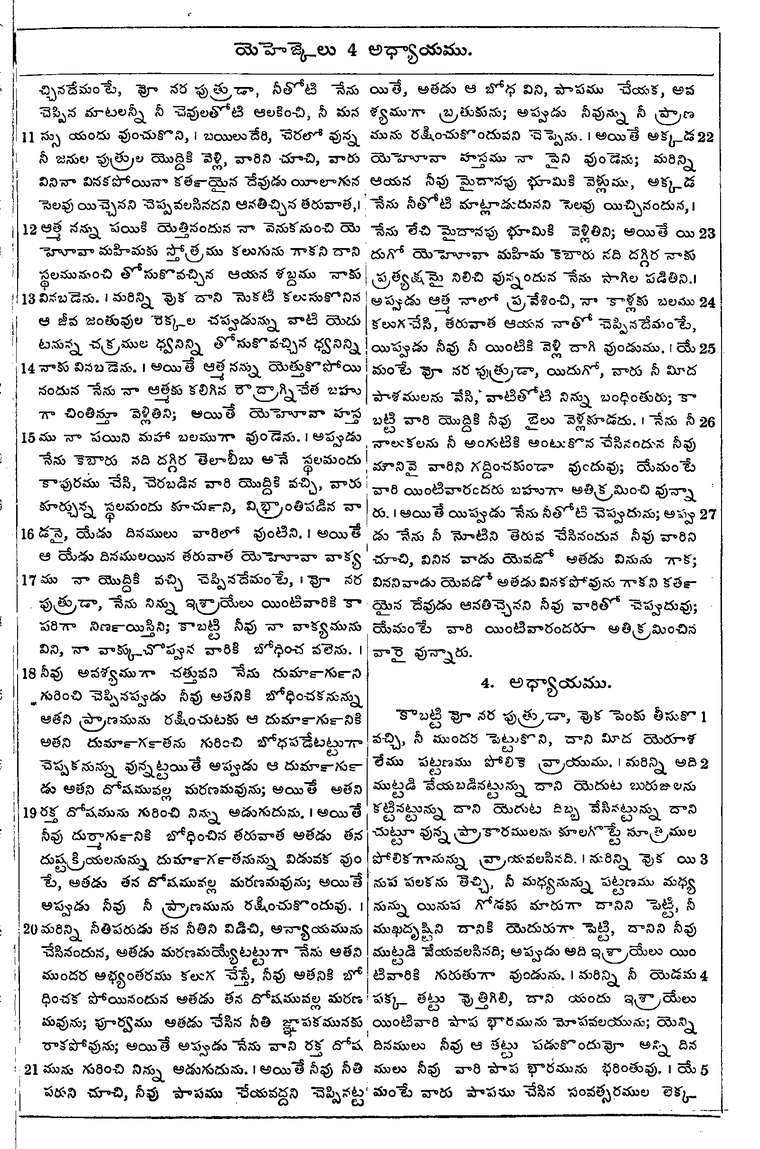 యెహెజ్కేలు 4 అధ్యాయము.
చ్చినదేమంటే, వో నర పుత్రుడా, నీతోటి నేను
చెప్పిన మాటలన్నీ నీ చెవులతోటి ఆలకించి, నీ మన
11 స్సు యందు వుంచుకొని, । బయిలుదేరి, చెరలో వున్న
నీ జనుల పుత్రుల యొద్దికి వెళ్లి, వారిని చూచి, వారు
వినినా వినకపోయినా కర్తయైన దేవుడు యీలాగున
సెలవు యిచ్చెనని చెప్పవలసినదని ఆనతిచ్చిన తరువాత, ।
12 ఆత్మ నన్ను పయికి యెత్తినందున నా వెనుకనుంచి యె
హోవా మహిమకు స్తోత్రము కలుగును గాకని దాని
స్థలమునుంచి తోసుకొవచ్చిన ఆయన శబ్దము నాకు
13 వినబడెను. । మరిన్ని వొక దాని నొకటి కలుసుకొనిన
ఆ జీవ జంతువుల రెక్కల చప్పుడున్ను వాటి యెదు
టనున్న చక్రముల ధ్వనిన్ని తోసుకొవచ్చిన ధ్వనిన్ని
14 నాకు వినబడెను. । అయితే ఆత్మ నన్ను యెత్తుకొపోయి
నందున నేను నా ఆత్మకు కలిగిన రౌద్రాగ్నిచేత బహు
గా చింతిస్తూ వెళ్లితిని; అయితే యెహోవా హస్త
15 ము నా పయిని మహా బలముగా వుండెను. । అప్పుడు
నేను కెబారు నది దగ్గిర తెలాబీబు అనే స్థలమందు
కాపురము చేసి, చెరబడిన వారి యొద్దికి వచ్చి, వారు
కూర్చున్న స్థలమందు కూర్చుని, విభ్రాంతిపడిన వా
16 డనై, యేడు దినములు వారిలో వుంటిని. । అయితే
ఆ యేడు దినములయిన తరువాత యెహోవా వాక్య
17 ము నా యొద్దికి వచ్చి చెప్పినదేమంటే, । వో నర
పుత్రుడా, నేను నిన్ను ఇశ్రాయేలు యింటివారికి కా
పరిగా నిర్ణయిస్తిని; కాబట్టి నీవు నా వాక్యమును
విని, నా వాక్కు చొప్పున వారికి బోధించ వలెను. ।
18 నీవు అవశ్యముగా చత్తువని నేను దుర్మార్గుని
గురించి చెప్పినప్పుడు నీవు అతనికి బోధించకనున్ను
అతని ప్రాణమును రక్షించుటకు ఆ దుర్మార్గునికి
అతని దుర్మార్గతను గురించి బోధపడేటట్టుగా
చెప్పకనున్ను వున్నట్టయితే అప్పుడు ఆ దుర్మార్గు
డు అతని దోషమువల్ల మరణమవును; అయితే అతని
19 రక్త దోషమును గురించి నిన్ను అడుగుదును. । అయితే
నీవు దుర్మార్గునికి బోధించిన తరువాత అతడు తన
దుష్ట క్రియలనున్ను దుర్మార్గతనున్ను విడువక వుం
టే, అతడు తన దోషమువల్ల మరణమవును; అయితే
అప్పుడు నీవు నీ ప్రాణమును రక్షించుకొందువు. ।
20 మరిన్ని నీతిపరుడు తన నీతిని విడిచి, అన్యాయమును
చేసినందున, అతడు మరణమయ్యేటట్టుగా నేను అతని
ముందర అభ్యంతరము కలుగ చేస్తే, నీవు అతనికి బో
ధించక పోయినందున అతడు తన దోషమువల్ల మరణ
మవును; పూర్వము అతడు చేసిన నీతి జ్ఞాపకమునకు
రాకపోవును; అయితే అప్పుడు నేను వాని రక్త దోష
21 మును గురించి నిన్ను అడుగుదును. । అయితే నీవు నీతి
పరుని చూచి, నీవు పాపము చేయవద్దని చెప్పినట్ట
యితే, అతడు ఆ బోధ విని, పాపము చేయక, అవ
శ్యముగా బ్రతుకును; అప్పుడు నీవున్ను నీ ప్రాణ
మును రక్షించుకొందువని చెప్పెను. । అయితే అక్కడ 22
యెహోవా హస్తము నా పైని వుండెను; మరిన్ని
ఆయన నీవు మైదానపు భూమికి వెళ్లుము, అక్కడ
నేను నీతోటి మాట్లాడుదునని సెలవు యిచ్చినందున, ।
నేను లేచి మైదానపు భూమికి వెళ్లితిని; అయితే యి 23
దుగో యెహోవా మహిమ కెబారు నది దగ్గిర నాకు
ప్రత్యక్షమై నిలిచి వున్నందున నేను సాగిల పడితిని. ।
అప్పుడు ఆత్మ నాలో ప్రవేశించి, నా కాళ్లకు బలము 24
కలుగచేసి, తరువాత ఆయన నాతో చెప్పినదేమంటే,
యిప్పుడు నీవు నీ యింటికి వెళ్లి దాగి వుండుము. । యే 25
మంటే వో నర పుత్రుడా, యిదుగో, వారు నీ మీద
పాశములను వేసి, వాటితోటి నిన్ను బంధింతురు; కా
బట్టి వారి యొద్దికి నీవు బైలు వెళ్లకూడదు. । నేను నీ 26
నాలుకలను నీ అంగుటికి అంటుకొన చేసినందున నీవు
మూనివై వారిని గద్దించకుండా వుందువు; యేమంటే
వారి యింటివారందరు బహుగా అతిక్రమించి వున్నా
రు. । అయితే యిప్పుడు నేను నీతోటి చెప్పుదును; అప్పు 27
డు నేను నీ నోటిని తెరువ చేసినందున నీవు వారిని
చూచి, వినిన వాడు యెవడో అతడు వినును గాక;
వినినివాడు యెవడో అతడు వినకపోవును గాకని కర్త
యైన దేవుడు ఆనతిచ్చెనని నీవు వారితో చెప్పుదువు;
యేమంటే వారి యింటివారందరూ అతిక్రమించిన
వారై వున్నారు.
4. అధ్యాయము.
కాబట్టి వో నర పుత్రుడా, వొక పెంకు తీసుకొ 1
వచ్చి, నీ ముందర పెట్టుకొని, దాని మీద యెరూశ
లేము పట్టణము పోలికె వ్రాయుము. । మరిన్ని అది 2
ముట్టడి వేయబడినట్టున్ను దాని యెదుట బురుజులను
కట్టినట్టున్ను దాని యెదుట దిబ్బ వేసినట్టున్ను దాని
చుట్టూ వున్న ప్రాకారములను కూలగొట్టే సూత్రముల
పోలికగానున్ను వ్రాయవలసినది. । మరిన్ని వొక యి 3
నుప పలకను తెచ్చి, నీ మధ్యనున్ను పట్టణము మధ్య
నున్ను యినుప గోడకు మారుగా దానిని పెట్టి, నీ
ముఖదృష్టిని దానికి యెదురుగా పెట్టి, దానిని నీవు
ముట్టడి వేయవలసినది; అప్పుడు అది ఇశ్రాయేలు యిం
టివారికి గురుతుగా వుండును. । మరిన్ని నీ యెడమ 4
పక్క తట్టు వొత్తిగిలి, దాని యందు ఇశ్రాయేలు
యింటివారి పాప భారమును మోపవలయును; యెన్ని
దినములు నీవు ఆ తట్టు పడుకొందువో అన్ని దిన
ములు నీవు వారి పాప భారమును భరింతువు. । యే 5
మంటే వారు పాపము చేసిన సంవత్సరముల లెక్క